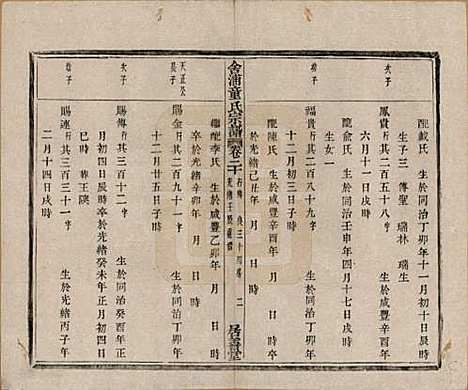 配戴氏 生於同治丁卯年十一月初十日戌時
生子三 傳聖 瑞林 瑞生
次子
鳳貴 行其二百五十八 生於同治戊辰年
六月十一日戌時
配俞氏 生於同治壬申年四月十七日戌時
生女一
幼子
福貴 行其二百八十九 生於同治丁卯年
十二月初三日子時
配陳氏 生於咸豐辛酉年 月 日 時卒
於光緒己丑年 月 日 時
合浦童氏宗譜 卷二十
居善堂
繼配李氏 生於咸豐乙卯年 月 日 時
卒於光緒辛卯年 月 日 時
天正公
長子
賜金 行其二百九十一 生於同治丁卯年
十二月廿五日子時
次子
賜傳 行其三百十二 生於同治癸酉年正
月初四日辰時卒於光緒癸未年正月初三日
巳時 葬王陝
幼子
賜連 行其三百三十 生於光緒丙子年
二月十四日戌時